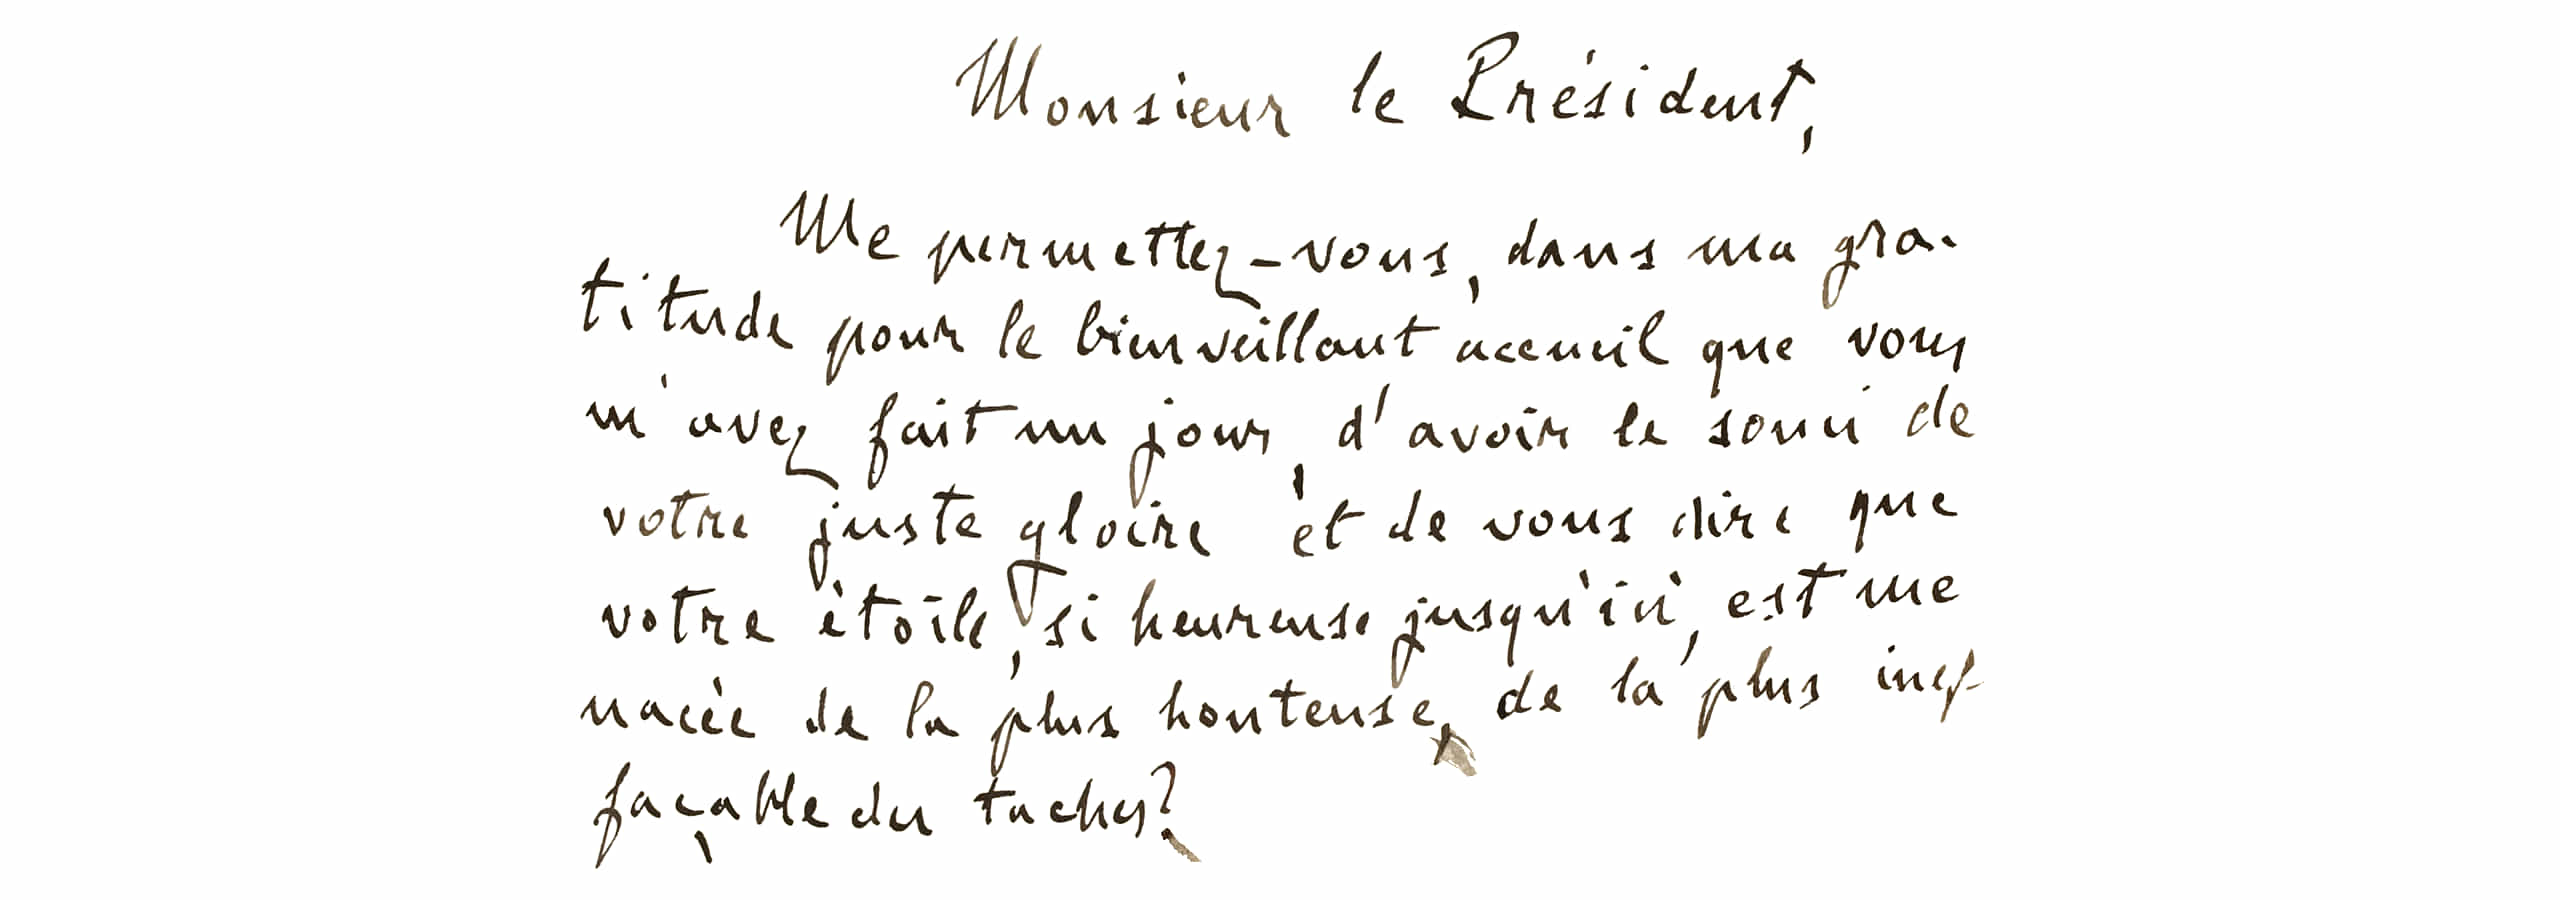 Monsieur le Président,
Me permettez-vous, dans ma gra-
titude pour le bienveillant accueil que vous
m'avez fait un jour, d'avoir le souci de
votre juste gloire et de vous dire que
votre étoile, si heureuse jusqu'ici, est me
nacée de la plus honteuse, de la plus inef-
façable des taches?